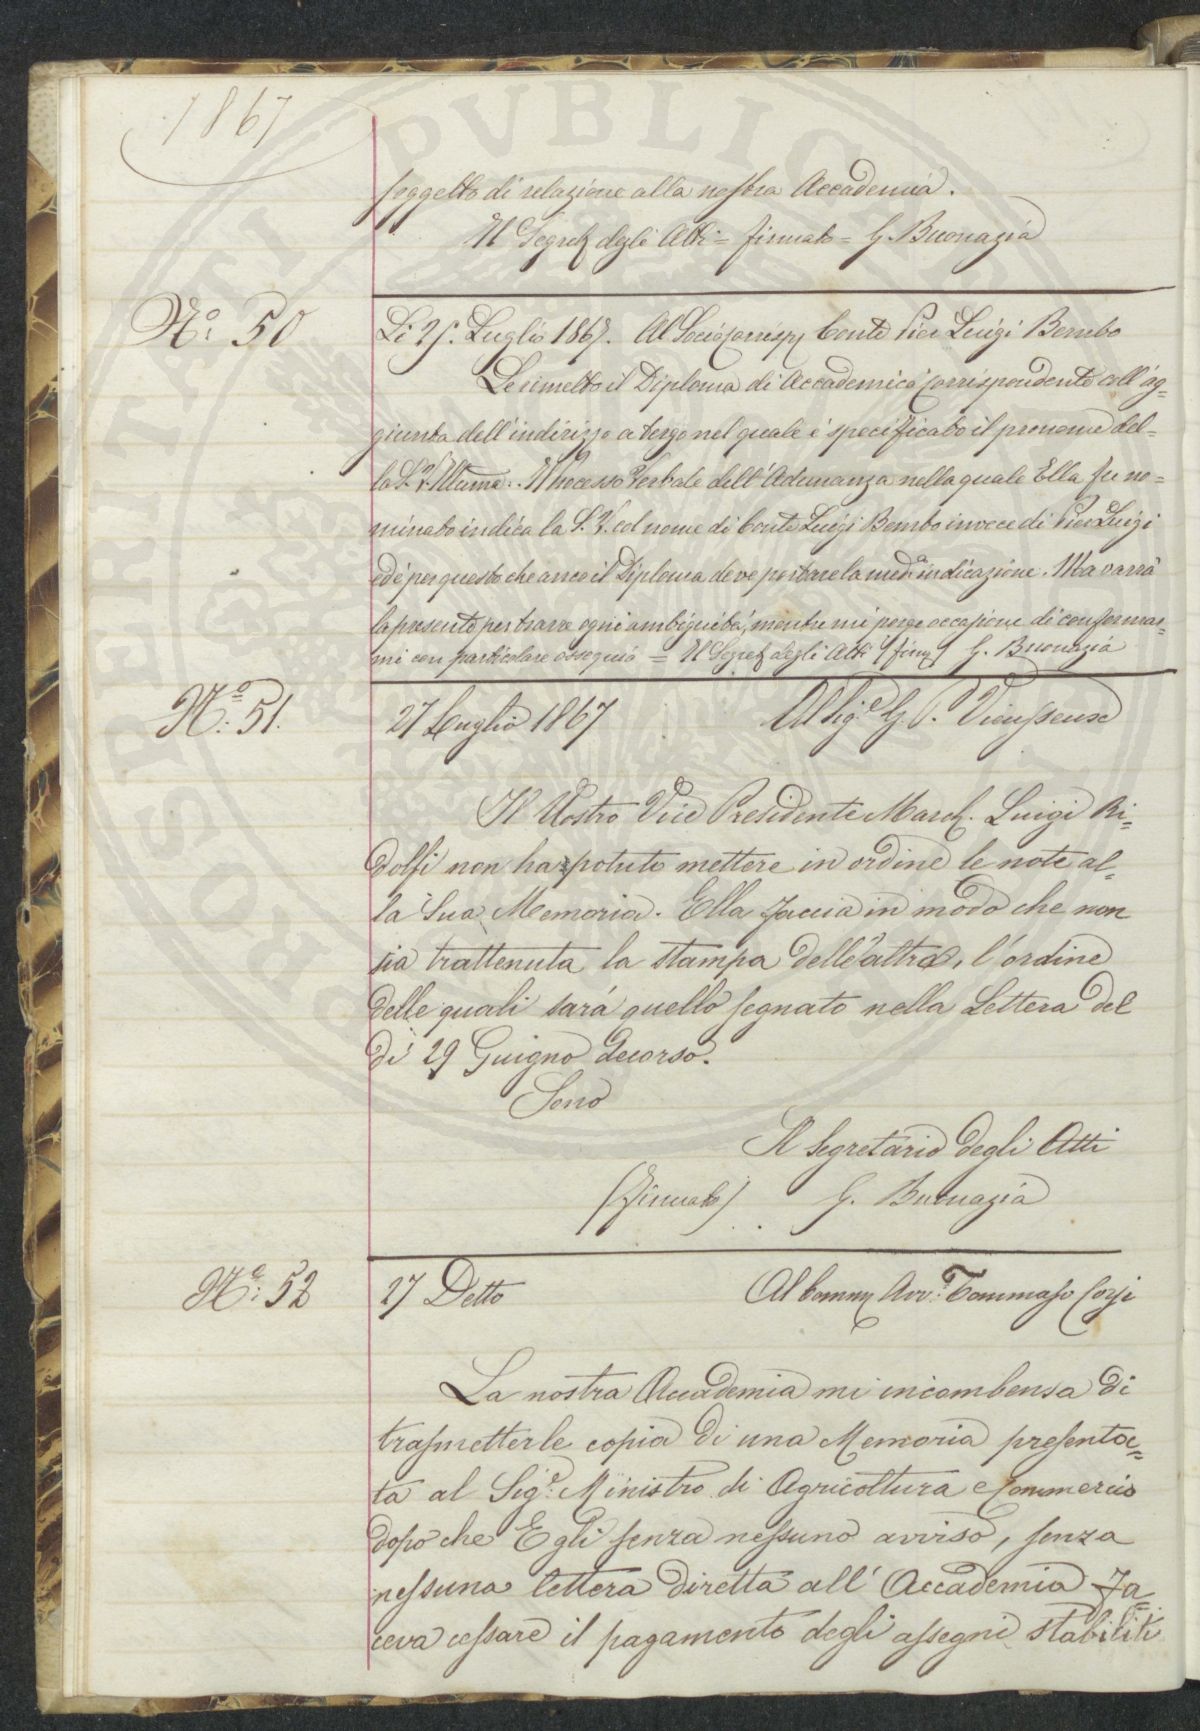 1867
soggetto di relazione alla nostra Accademia.
Il Segret. degli Atti = firmato = G. Buonazia
N.o 50
Li 25. Luglio 1867. Al Socio Corrisp. Conte Pier Luigi Bembo
Le rimetto il Diploma di Accademico Corrispondente coll'ag=
giunta dell'indirizzo a tergo nel quale è specificato il prenome del=
la S. V. Illuma. Il Processo Verbale dell'Adunanza nella quale Ella fu no=
minato indica la S. V. col nome di Conte Luigi Bembo invece di Pier Luigi
ed è per questo che anco il Diploma deve portare la meda indicazione. Ma varrà
la presente per trarre ogni ambiguità, mentre mi porge occasione di confermar=
mi con particolare ossequio = Il Segret. degli Atti (firm.) G. Buonazia
N.o 51.
27 Luglio 1867 Al Sig.e G. P. Vieusseux
Il Nostro Vice Presidente March. Luigi Ri=
dolfi non ha potuto mettere in ordine le note al=
la Sua Memoria. Ella faccia in modo che non
sia trattenuta la stampa delle altre, l'ordine
delle quali sará quello segnato nella Lettera del
di 29 Guigno decorso.
Sono
Il Segretario degli Atti
(Firmato) G. Buonazia
N.o 52
27 Detto Al Comm. Avv.o Tommaso Corsi
La nostra Accademia mi incombensa di
trasmetterle copia di una Memoria presenta=
ta al Sig.e Ministro di Agricoltura e Commercio
dopo che Egli senza nessuno avviso, senza
nessuna lettera diretta all'Accademia fa=
ceva cessare il pagamento degli assegni stabiliti
PROSPERITATI PVBLICAE